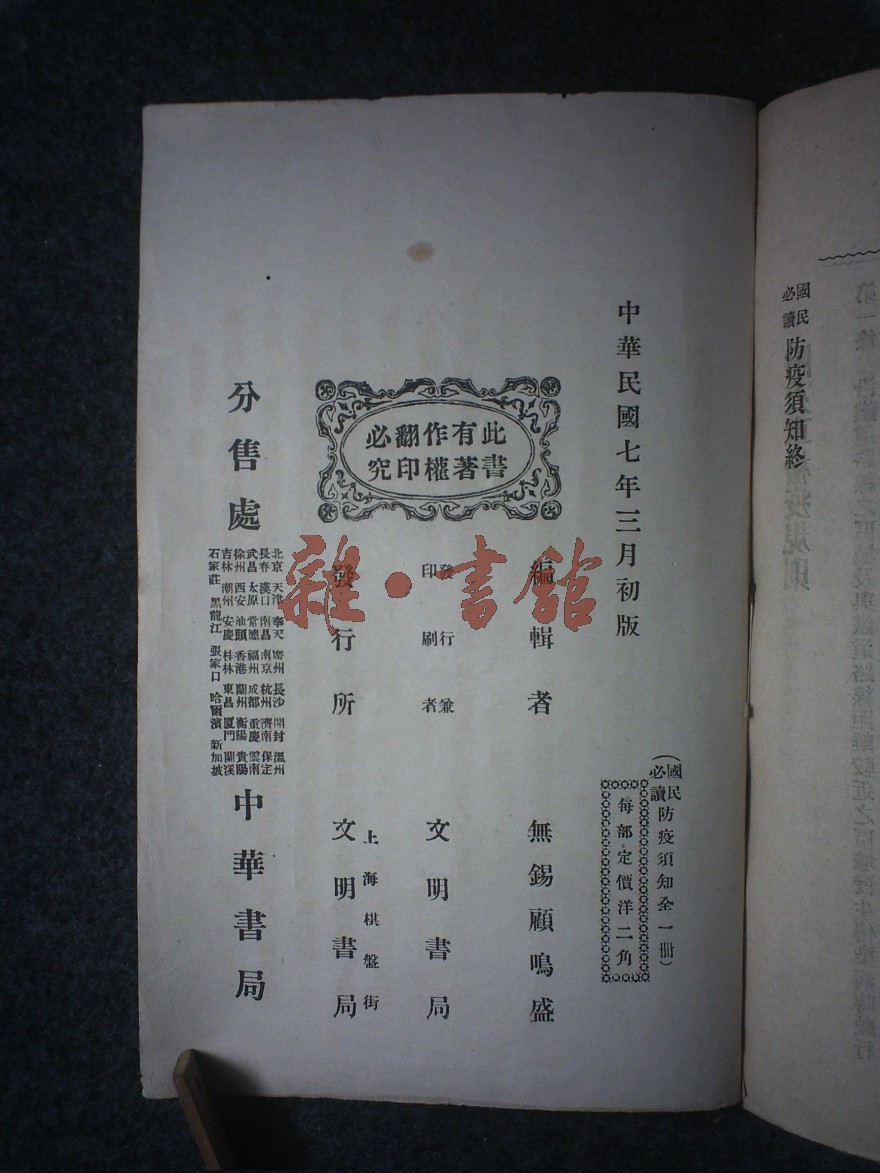 國民必讀防疫須知終
中華民國七年三月初版
(國民必讀防疫須知全一冊)
每部定價洋二角
編輯者 無錫顧鳴盛
發行兼印刷者 文明書局
此書有著作權翻印必究
發行所 上海棋盤街文明書局
分售處
北京 天津 奉天 廣州 長沙 開封 溫州
長春 漢口 南昌 南京 杭州 濟南 保定
武昌 太原 常德 福州 成都 重慶 雲南
徐州 西安 汕頭 香港 蘭州 衡陽 貴陽
吉林 潮州 安慶 桂林 東昌 厦門 蘭溪
石家莊 黑龍江 張家口 哈爾濱 新加坡
中華書局
雜·書館